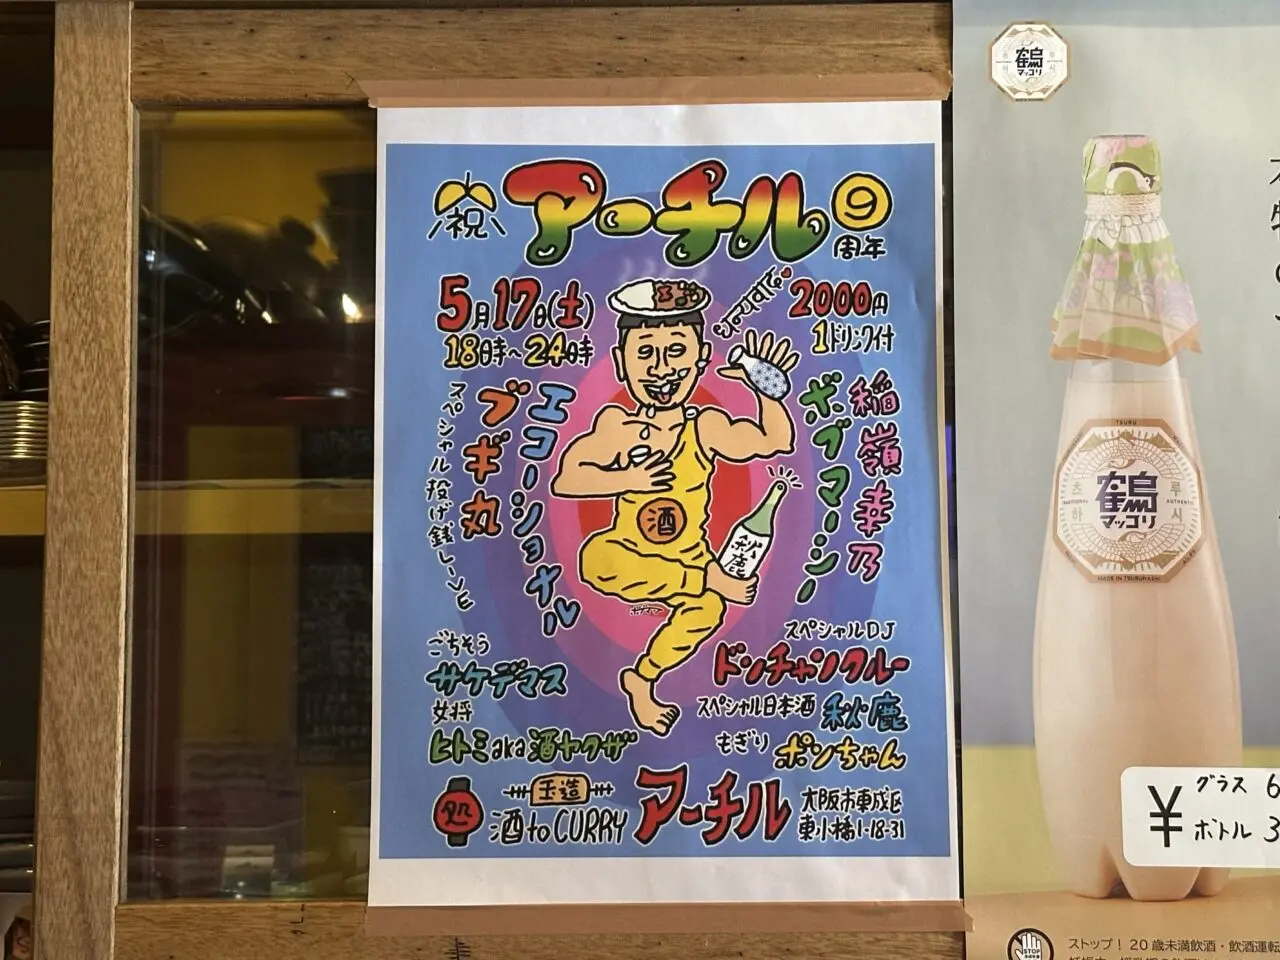 祝
アーチル
9
周年
5月17日(土)
18時〜24時
2000円
1ドリンク付
エコーショナル
ブギ丸
スペシャル投げ銭レーベル
稲嶺幸乃
ボブマーシー
酒
秋鹿
ごちそう
サケデマス
女将
ヒトミaka酒ヤクザ
スペシャルDJ
ドンチャンクルー
スペシャル日本酒 秋鹿
もぎり ポンちゃん
処
玉造
酒 to CURRY
アーチル
大阪市東成区
東小橋1-18-31
鶴
マッコリ
TSURU
츠루
하시
AUTHENTIC
鶴
マッコリ
MADE IN TSURUHASHI
¥
グラス 6
ボトル 3
STOP
ストップ!20歳未満飲酒・飲酒運転